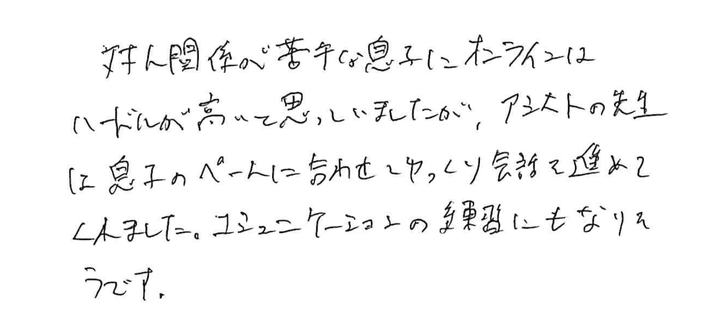 対人関係が苦手な息子にオンラインは
ハードルが高いと思っていましたが、アシストの先生
は息子のペースに合わせてゆっくり会話を進めて
くれました。コミュニケーションの練習にもなりそ
うです。